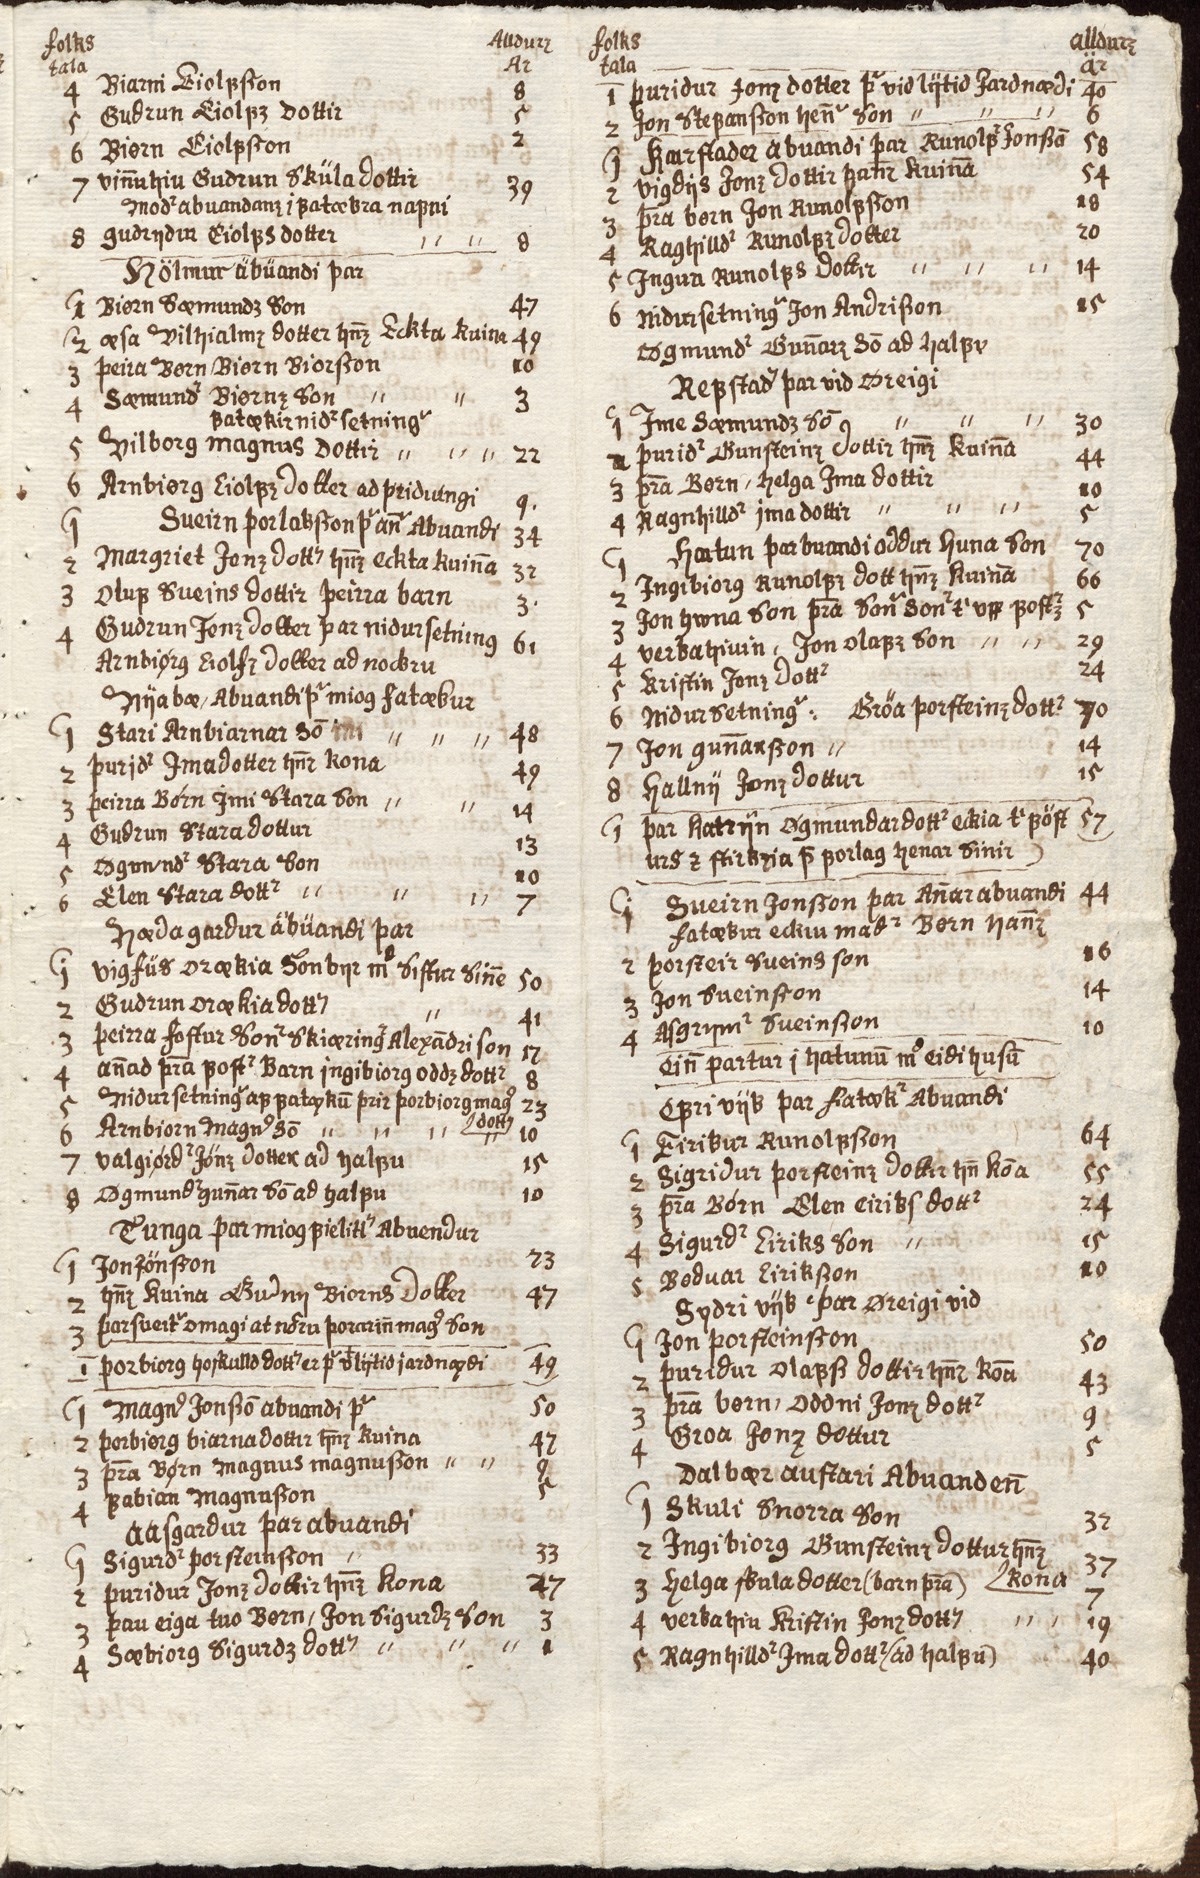 folks Alldurz
tala Ar
4 Biarni Eiolpsson 8
5 Gudrun Eiolps dottir 5
6 Biørn Eiolpsson 2
7 vin̄uhiu Gudrun Skúla dottir 39
Modr abuandans i patækra napni
8 gudrijdur Eiolps dotter " " 8
Hólmur ábúandi þar
1 Biørn Sæmunds Son 47
2 æsa Vilhialms dotter hn̄s Eckta kuina 49
3 þeira Børn / Biørn Biorsson 10
4 Sæmundr Biørns Son " " 3
patækir nidrsetningr
5 Vilborg magnus Dottir " " " 22
6 Arnbiørg Eiolps dotter ad þridungi 9.
1 Sueirn þorlaksson þr an̄r Abuandi 34
2 Margriet Jons dottr hn̄s eckta kuin̄a 32
3 Olup Sueins dottir þeirra barn 3.
4 Gudrun Jons dotter þar nidursetning 61
Arnbiørg Eiolfs dotter ad nockru
Nijabæ / Abuandi þr miog fatækur
1 Stari Arnbiarnar Sō " " " 48
2 þurjdr Jmadotter hn̄r kona 49
3 þeirra Børn Jmi Stara Son " " 14
4 Gudrun Stara dottur 13
5 Ogmundr Stara Son 10
6 Elen Stara dottr " " " 7
Hædagardur ábúandi þar
1 vigfús Orækia Son byr md Sistur Sin̄e 50
2 Gudrun Orækia dottr " 41
3 þeirra fostur Sonr Skiæringr Alexandri son 17
4 an̄ad þra postr Barn ingibiorg odds dottr 8
5 Nidursetningr ap patækū þrir þorbiorg magr 23
6 Arnbiorn Magnr Sō " " " (dottr 10
7 valgiørdr Jóns dotter ad halpu 15
8 Ogmundr gun̄ar Sō ad halpu 10
Tunga þar miog pielitlr Abuendur
1 Jon Jónsson 23
2 hn̄s kuina Gudnij Biorns Dotter 47
3 þar sueitr omagi at nóru þorarin̄ magr Son
1 þorbiorg hoskulld dottr er þr vid lijtid jardnædi 49
1 Magnr Jonssō abuandi þr 50
2 þorbiørg biarna dottir hn̄s kuina 47
3 þra Børn Magnus magnusson " " 9
4 pabian Magnusson 5
Aasgardur þar abuandi
1 Sigurdr þorsteinsson " 33
2 þuridur Jons dottir hn̄s Kona 47
3 þau eiga tuo Børn / Jon Sigurds Son 3
4 Sæbiorg Sigurds dottr " " " 1
folks alldurz
tala ár
1 þuridur Jons dotter þr vid lijtid Jardnædi 40
2 Jon Stepansson hen̄r son " " " 6
1 Karstader abuandi þar Runolpr Jonssō 58
2 vigdijs Jons dottir han̄r kuin̄a 54
3 þra børn Jon Runolpsson 18
4 Raghilldr Runolps dotter 20
5 Jngua Runolps dotter " " " 14
6 Nidursetningr Jon Andrisson 15
Ogmundr Gun̄ars Sō ad halpu
Repstadr þar vid Øreigi
1 Jme Sæmunds Sō " " " 30
2 þuridr Gunsteins dottir hn̄s kuin̄a 44
3 þra Børn / helga Jma dottir 10
4 Ragnhilldr jma dottir " " " 5
1 Hatun þar buandi oddur huna Son 70
2 Ingibiorg Runolps dott hn̄s kuin̄a 66
3 Jon huna Son þra Sonr Sonr tr upp postrs 5
4 verkahiuin / Jon Olaps Son " " 29
5 kristin Jons dottr 24
6 Nidursetningr : Gróa þorsteins dottr 70
7 Jon gun̄arsson " 14
8 Hallnij Jons dottur 15
1 þar Katrijn Ogmundar dottr eckia tr póst 57
urs z stirkia þ porlag henar Sinir
1 Sueirn Jonsson þar An̄ar abuandi 44
fatækur eckiu madr Børn han̄s
2 þorsteir Sueins son 16
3 Jon Sueinsson 14
4 Asgrijmr Sueinsson 10
Ein̄ partur i hatunū md eidi husū
Epri vijk þar fatækr Abuandi
1 Eirikur Runolpsson 64
2 Sigridur þorsteins dotter hn̄ kōa 55
3 þra Børn Elen Eiriks dottr 24
4 Sigurdr Eiriks Son " 15
5 Boduar Eiriksson 10
Sydri vijk þar Øreigi vid
1 Jon þorsteinsson 50
2 þuridur Olaps dottir hn̄r kōa 43
3 þra børn / Oddni Jons dottr 9
4 Groa Jons dottur 5
Dalbær austari Abuanden̄
1 Skuli Snorra Son 32
2 Ingibiorg Gunsteins dottur hn̄s 37
3 helga skula dotter (barn þra) (kona 7
4 verkahiu Kristin Jons dottr " " 19
5 Ragnhilldr Jma dottr (ad halpū) 40